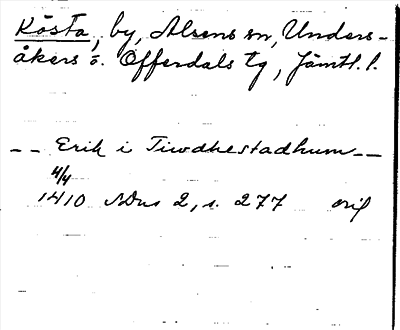 Kösta, by, Alsens sn, Unders-
åkers o. Offerdals tg, Jämtl. l.
-- Erik i Tiwdhestadhum --
4/4
1410 SDns 2, s. 277 orig